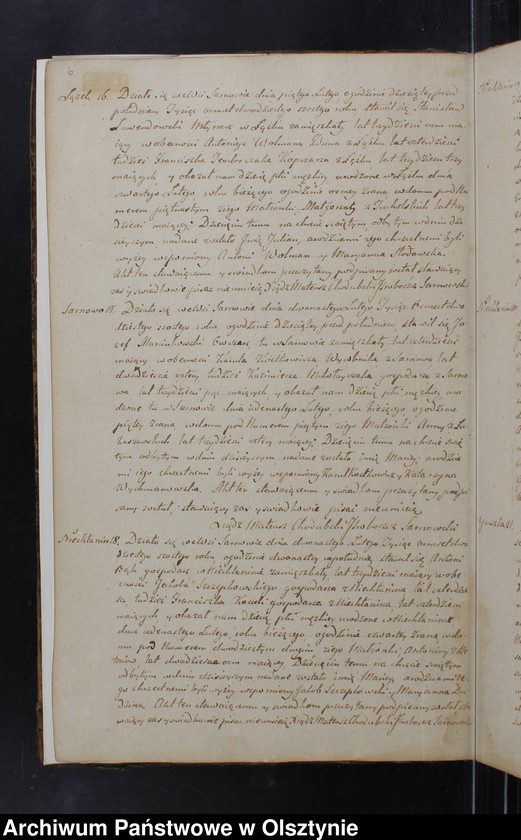 6
Łążek 16. Działo się we Wsi Sarnowie dnia piątego Lutego o godzinie dziesiątey przed
południem Tysiąc osmset dwudziestego szostego roku stawił się Stanisław
Lewandowski Młynarz w Łążku zamięszkały lat trzydziesci
maiący w obecnosci Antoniego Wolmana z Łążku lat czterdziesci
tudzież Franciszka z Łążku lat trzydziesci trzy
maiących y okazał nam dziecię płci męzkiey urodzone w Łążku dnia
czwartego Lutego, roku bieżącego o godzinie osmey zrana w domu pod Nu-
merem piętnastym z iego Małżonki Małgorzaty z lat trzy-
dziesci maiącey. Dziecięciu temu na chrzcie swiętym odbytym w dniu dzi-
sieyszym nadane zostało Imię Julian, a rodzicami iego chrzestnemi byli
wyżey wspomniony Antoni Wolman y Maryanna
Akt ten stawaiącemu y swiadkom przeczytany podpisany został stawaiący
zas y swiadkowie pisac nieumieią. Xiądz Mateusz Chudubski Proboszcz Sarnowski
Sarnowo 17. Działo się we Wsi Sarnowie dnia dwunastego Lutego Tysiąc osmset dwu-
dziestego szostego roku o godzinie dziesiątey przed południem, stawił się Jo-
zef Owczarz tu w Sarnowie zamięszkały lat czterdziesci
maiący w obecnosci Karola Wyrobnika z Sarnowa lat
dwadziescia cztery tudzież Kazimierza gospodarza z Sarno-
wa lat trzydziesci pięc maiących y okazał nam dziecię płci męzkiey uro-
dzone tu w Sarnowie dnia iedenastego Lutego, roku bieżącego o godzinie
piątey zrana w domu pod Numerem piątym z iego Małżonki Anny z Łu-
kaszewskich lat trzydziesci cztery maiącey. Dziecięciu temu na chrzcie swię-
tym odbytym w dniu dzisieyszym nadane zostało imię Maciey a rodzica-
mi iego chrzestnemi byli wyżey wspomniony Karol y Katarzyna
Wychmanowska. Akt ten stawaiącemu y swiadkom przeczytany podpi-
sany został, stawaiący zas y swiadkowie pisac nieumieią
Xiądz Mateusz Chudubski Proboszcz Sarnowski
Niechłanin 18. Działo się we Wsi Sarnowie dnia dwunastego Lutego Tysiąc osmset dwu-
dziestego szostego roku, o godzinie dwunastey w południe, stawił się Antoni
Bąk gospodarz w Niechłaninie zamięszkały, lat trzydziesci maiący w obe-
cnosci Jakoba gospodarza z Niechłanina lat czterdzie-
sci, tudzież Franciszka Kozuli gospodarza z Niechłanina, lat czterdziesci
maiących, y okazał nam dziecię płci męzkiey urodzone w Niechłaninie
dnia iedenastego Lutego, roku bieżącego, o godzinie czwartey zrana w do-
mu pod Numerem dwudziestym drugim z iego Małżonki Antoniny z
lat dwadziescia osm maiącey. Dziecięciu temu na chrzcie swiętym
odbytym w dniu dzisieyszym nadane zostało imię Maciey, a rodzicami ie-
go chrzestnemi byli wyżey wspomniony Jakob y Maryanna
Akt ten stawaiącemu y swiadkom przeczytany podpisany został sta-
waiący zas y swiadkowie pisac nieumieią Xiądz Mateusz Chudubski Proboszcz Sarnowski
Niechłanin
Archiwum Państwowe w Olsztynie